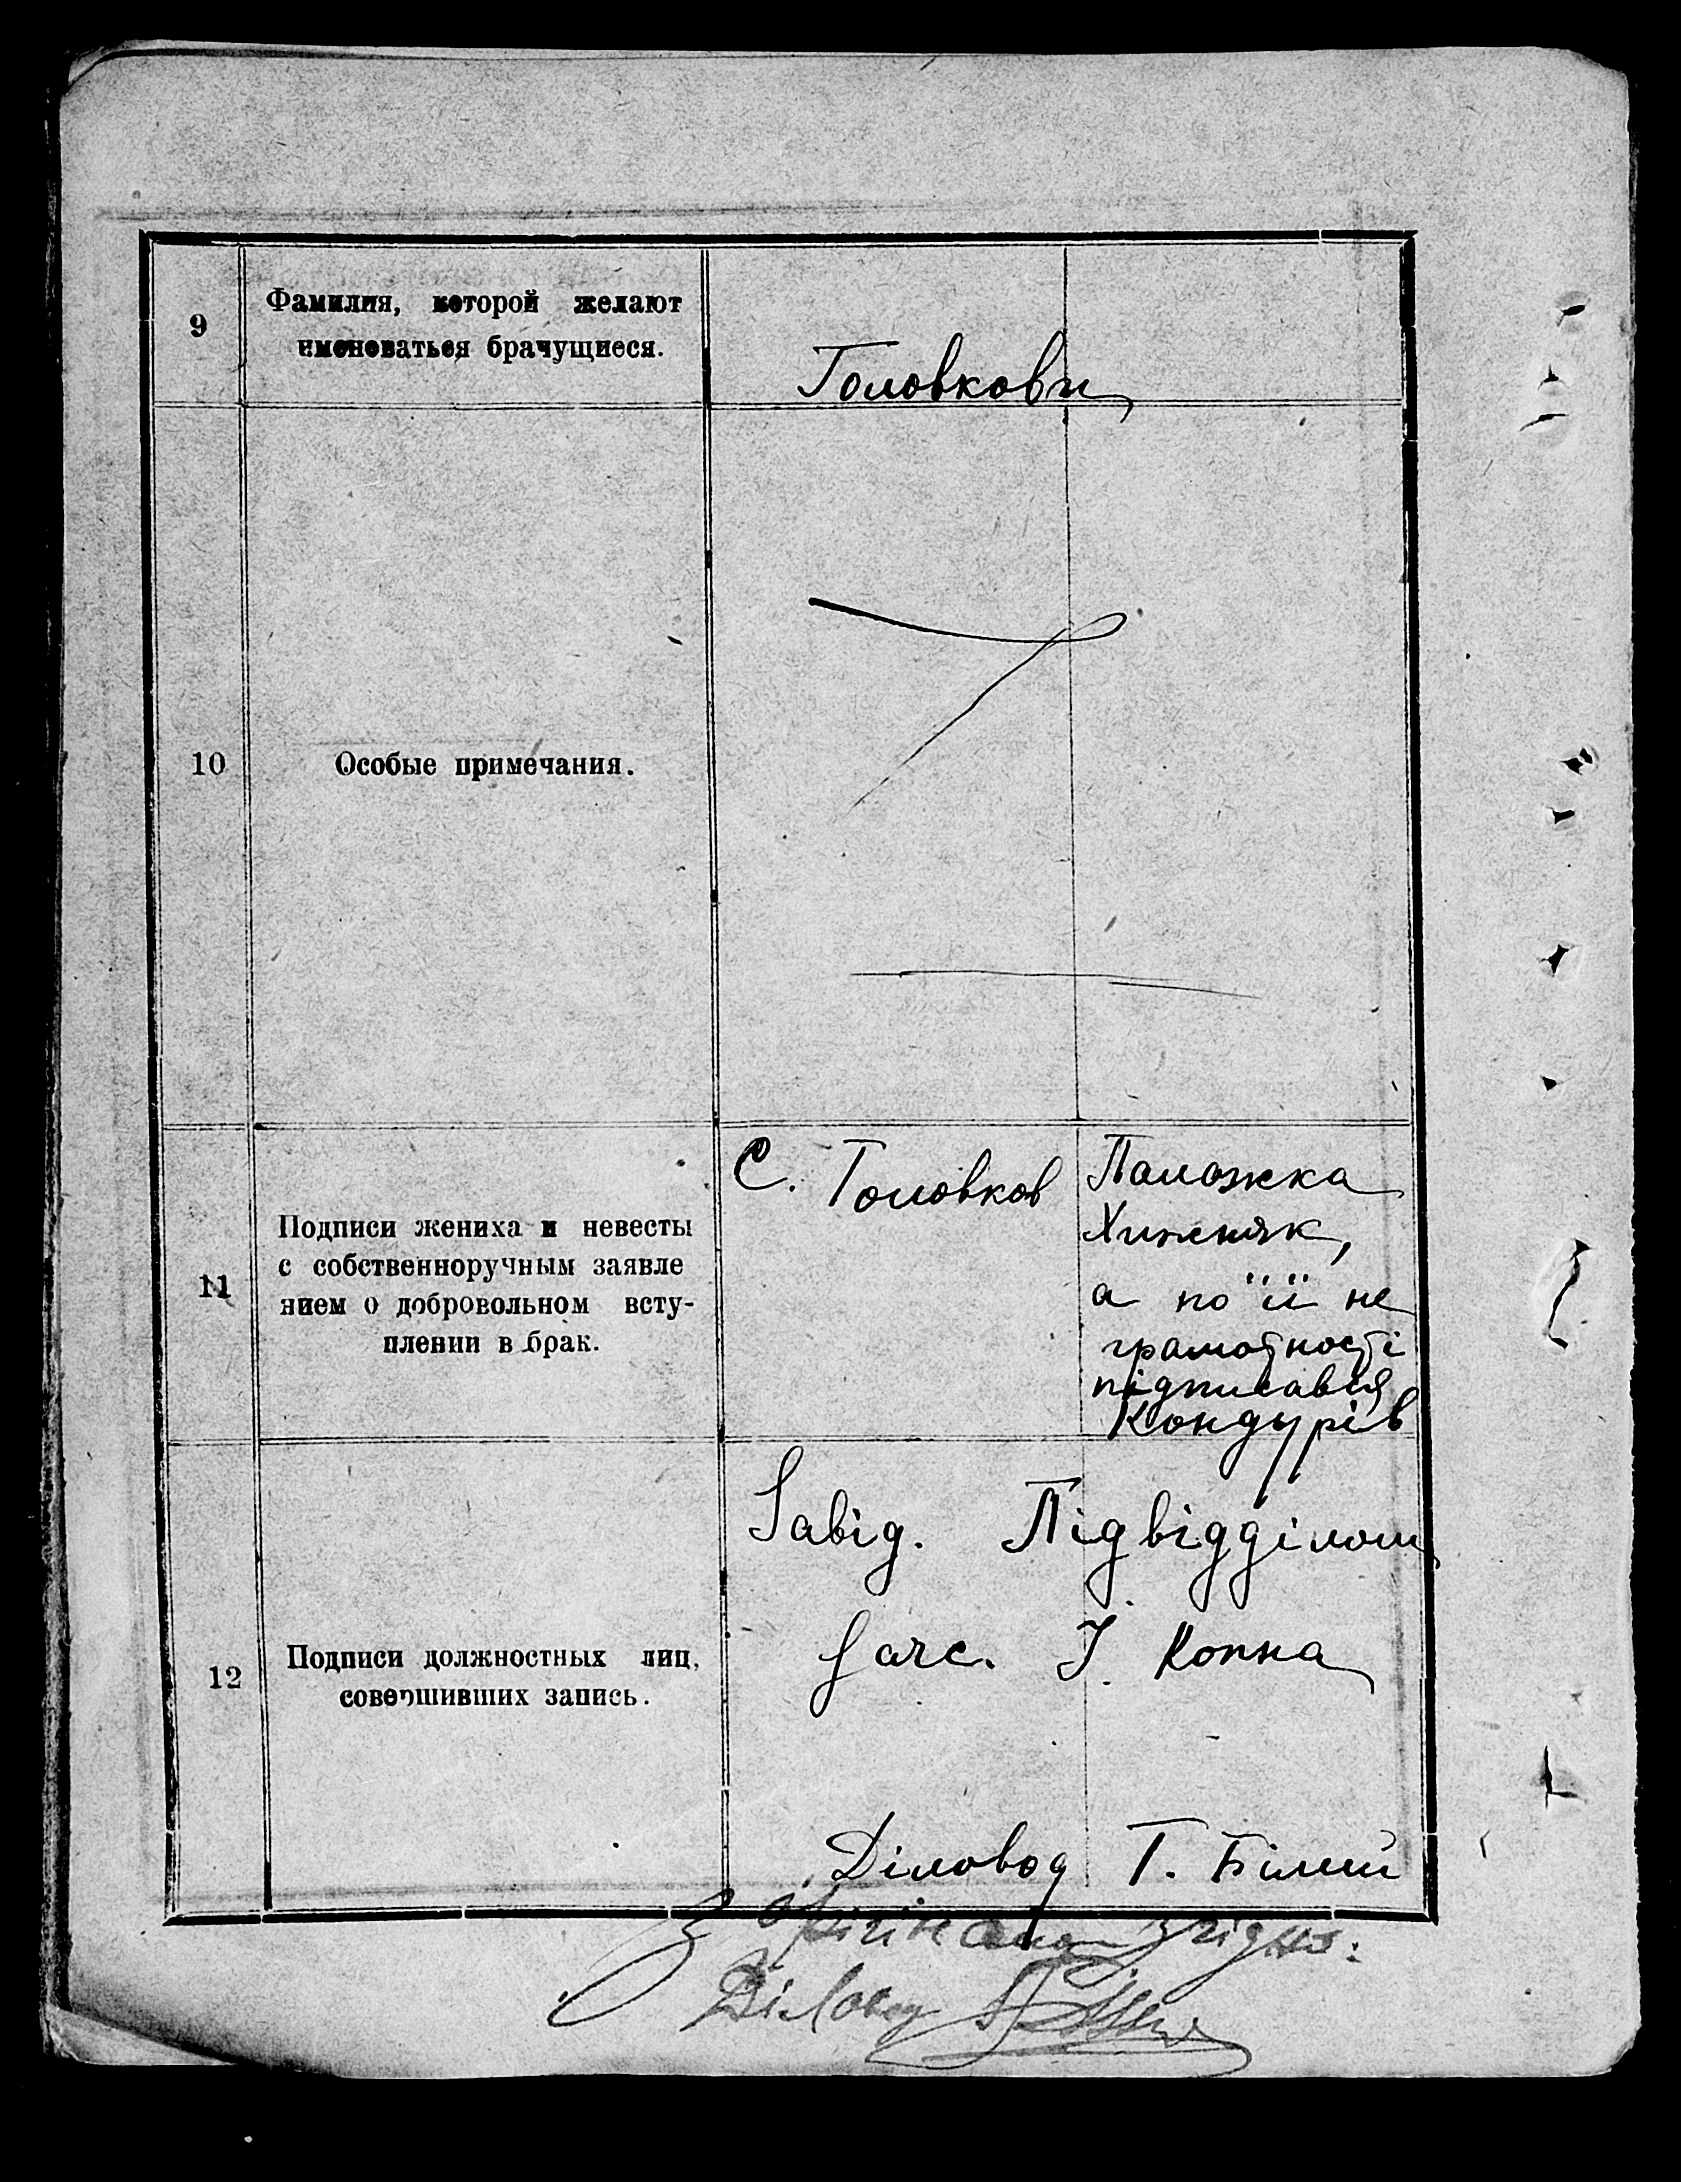 9
Фамилия, которой желают
именоваться брачущиеся.
Головкови
10
Особые примечания.
11
Подписи жениха и невесты
с собственноручным заявле
нием о добровольном всту-
плении в брак.
С. Головков
Палажка
Хижняк,
а по її не
грамотності
підписався
Кондурів
12
Подписи должностных лиц,
совершивших запись.
Завід. Підвідділом
Загс. І. Копна
Діловод Г. Білий
З оригіналом згідно:
Діловод